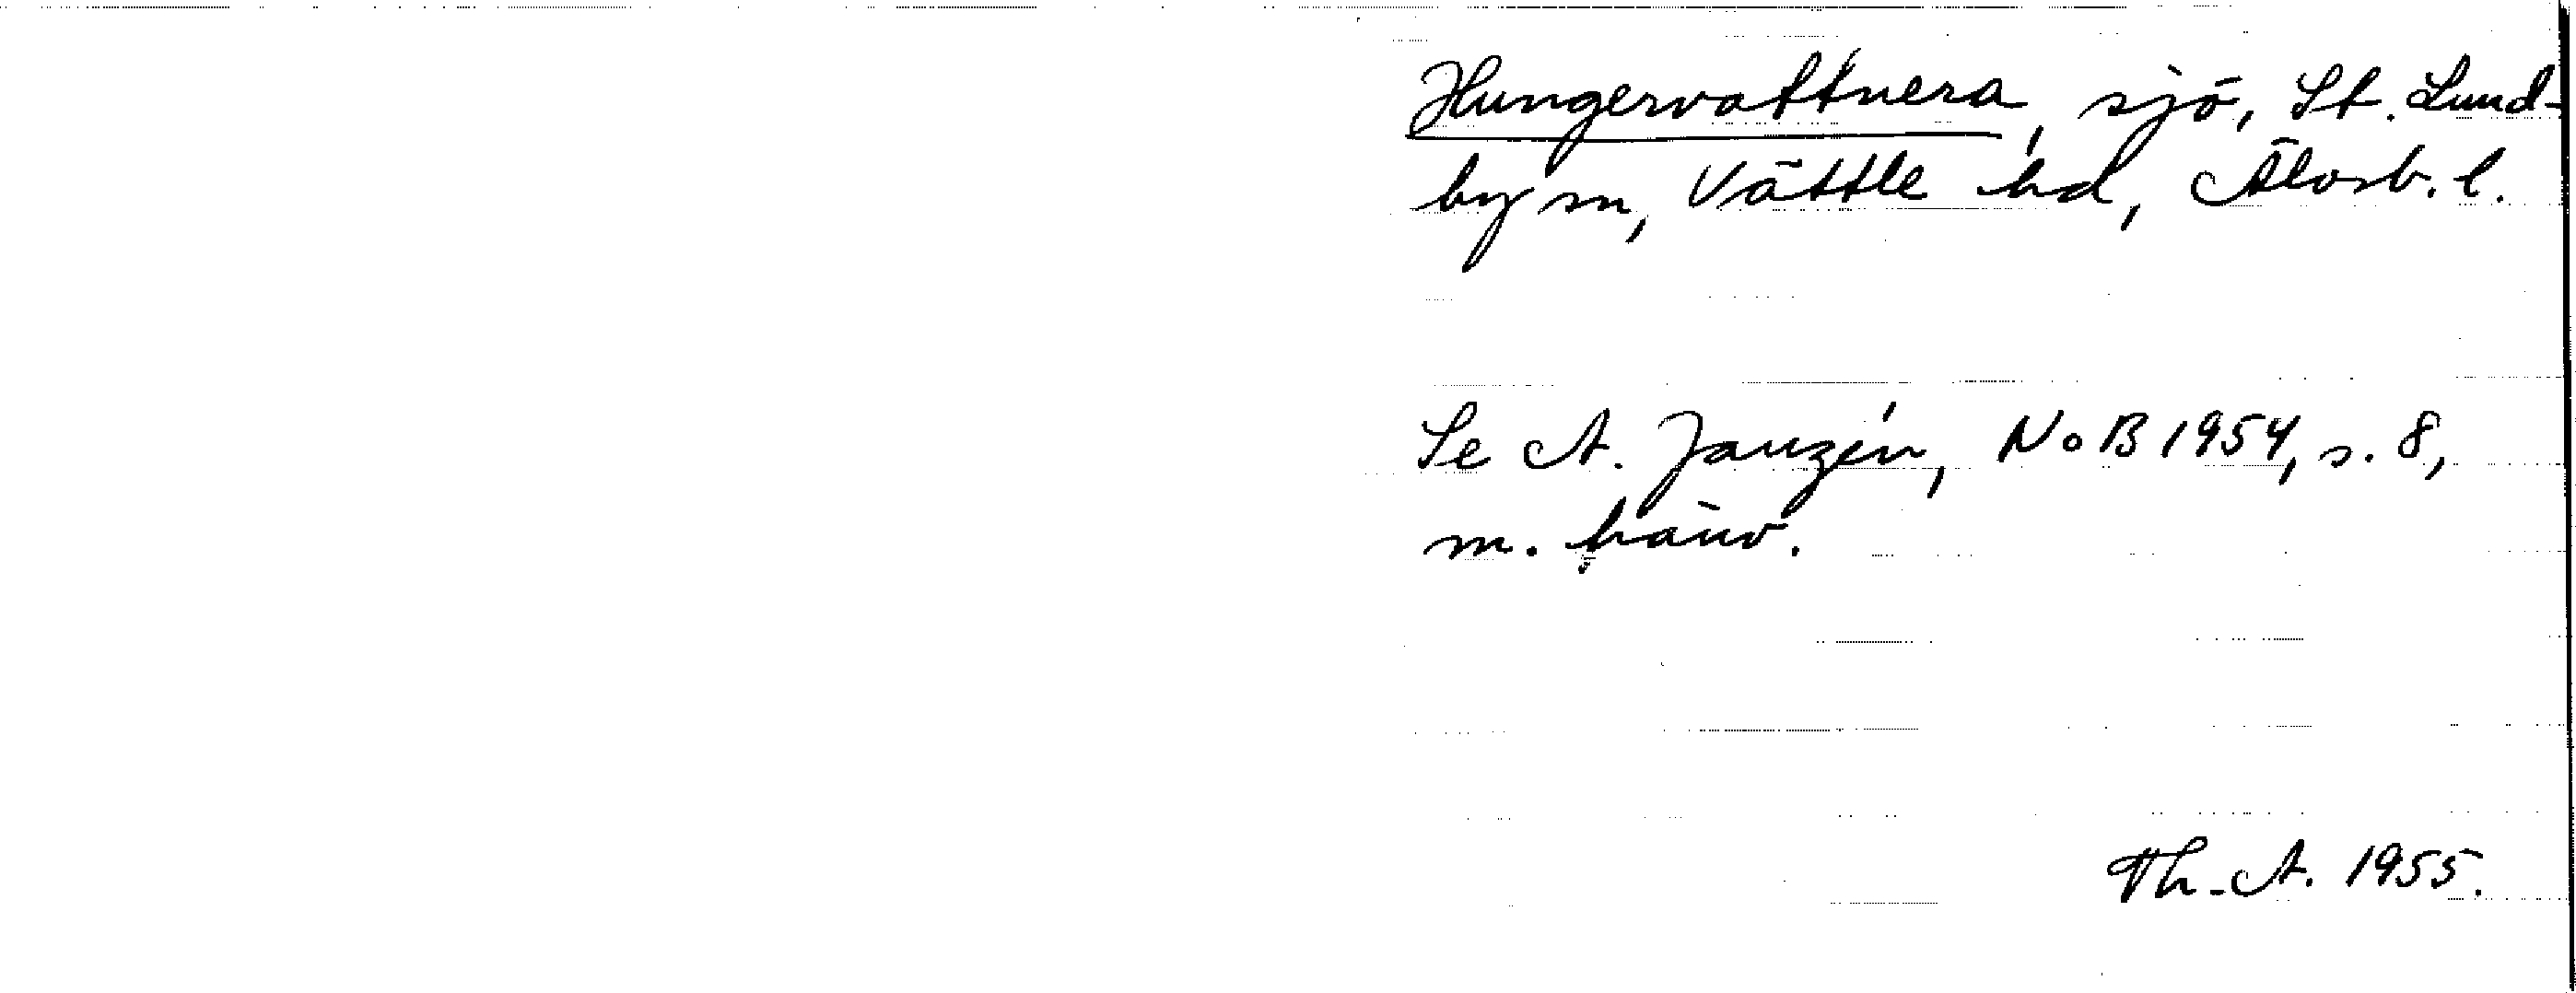 Hungervattnera, sjö, St. Lund-
by sn, Vättle hd, Älvsb. l.
Se A. Janzén, NoB 1954, s. 8,
m. hänv.
Th. A. 1955.